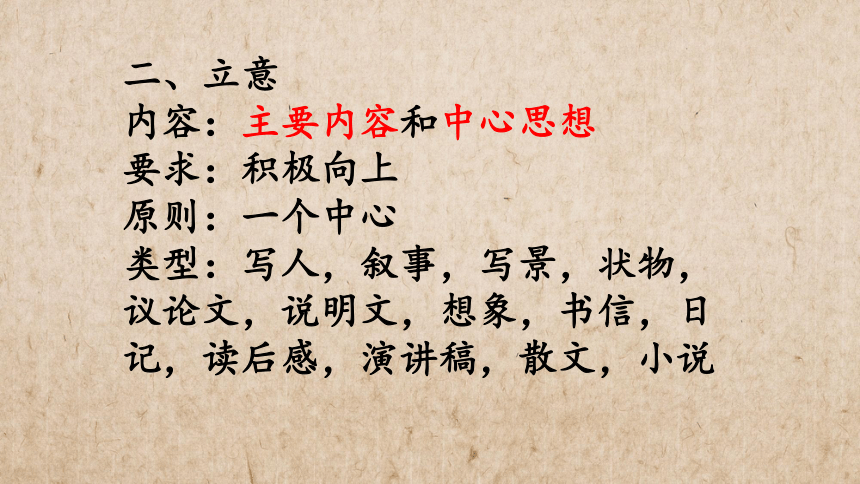 二、立意
内容：主要内容和中心思想
要求：积极向上
原则：一个中心
类型：写人，叙事，写景，状物，
议论文，说明文，想象，书信，日
记，读后感，演讲稿，散文，小说